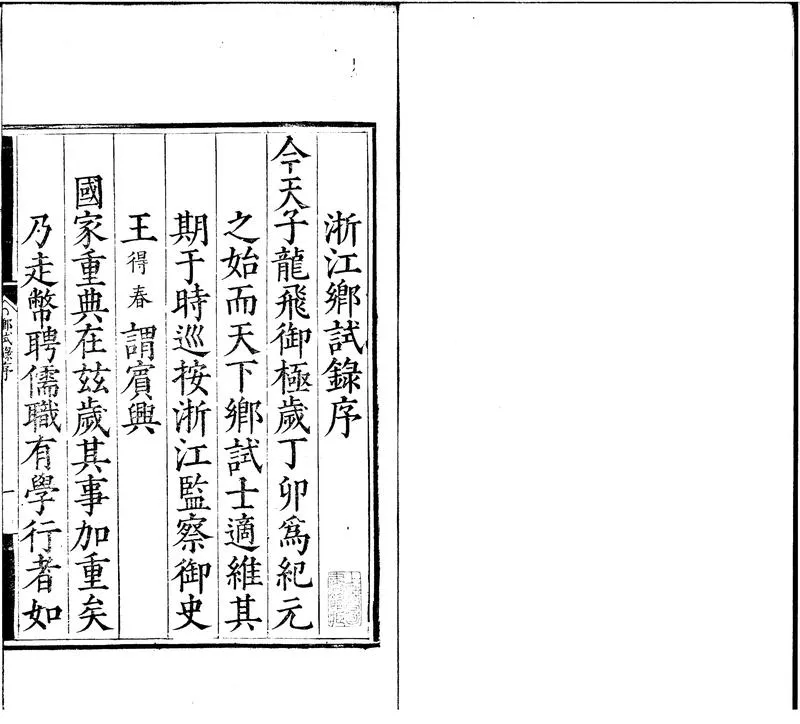 浙江鄉試錄序
今天子龍飛御極歲丁卯爲紀元
之始而天下鄉試士適維其
期于時巡按浙江監察御史
王得春謂賓興
國家重典在玆歲其事加重矣
乃走幣聘儒職有學行者如
鄉試錄序
一